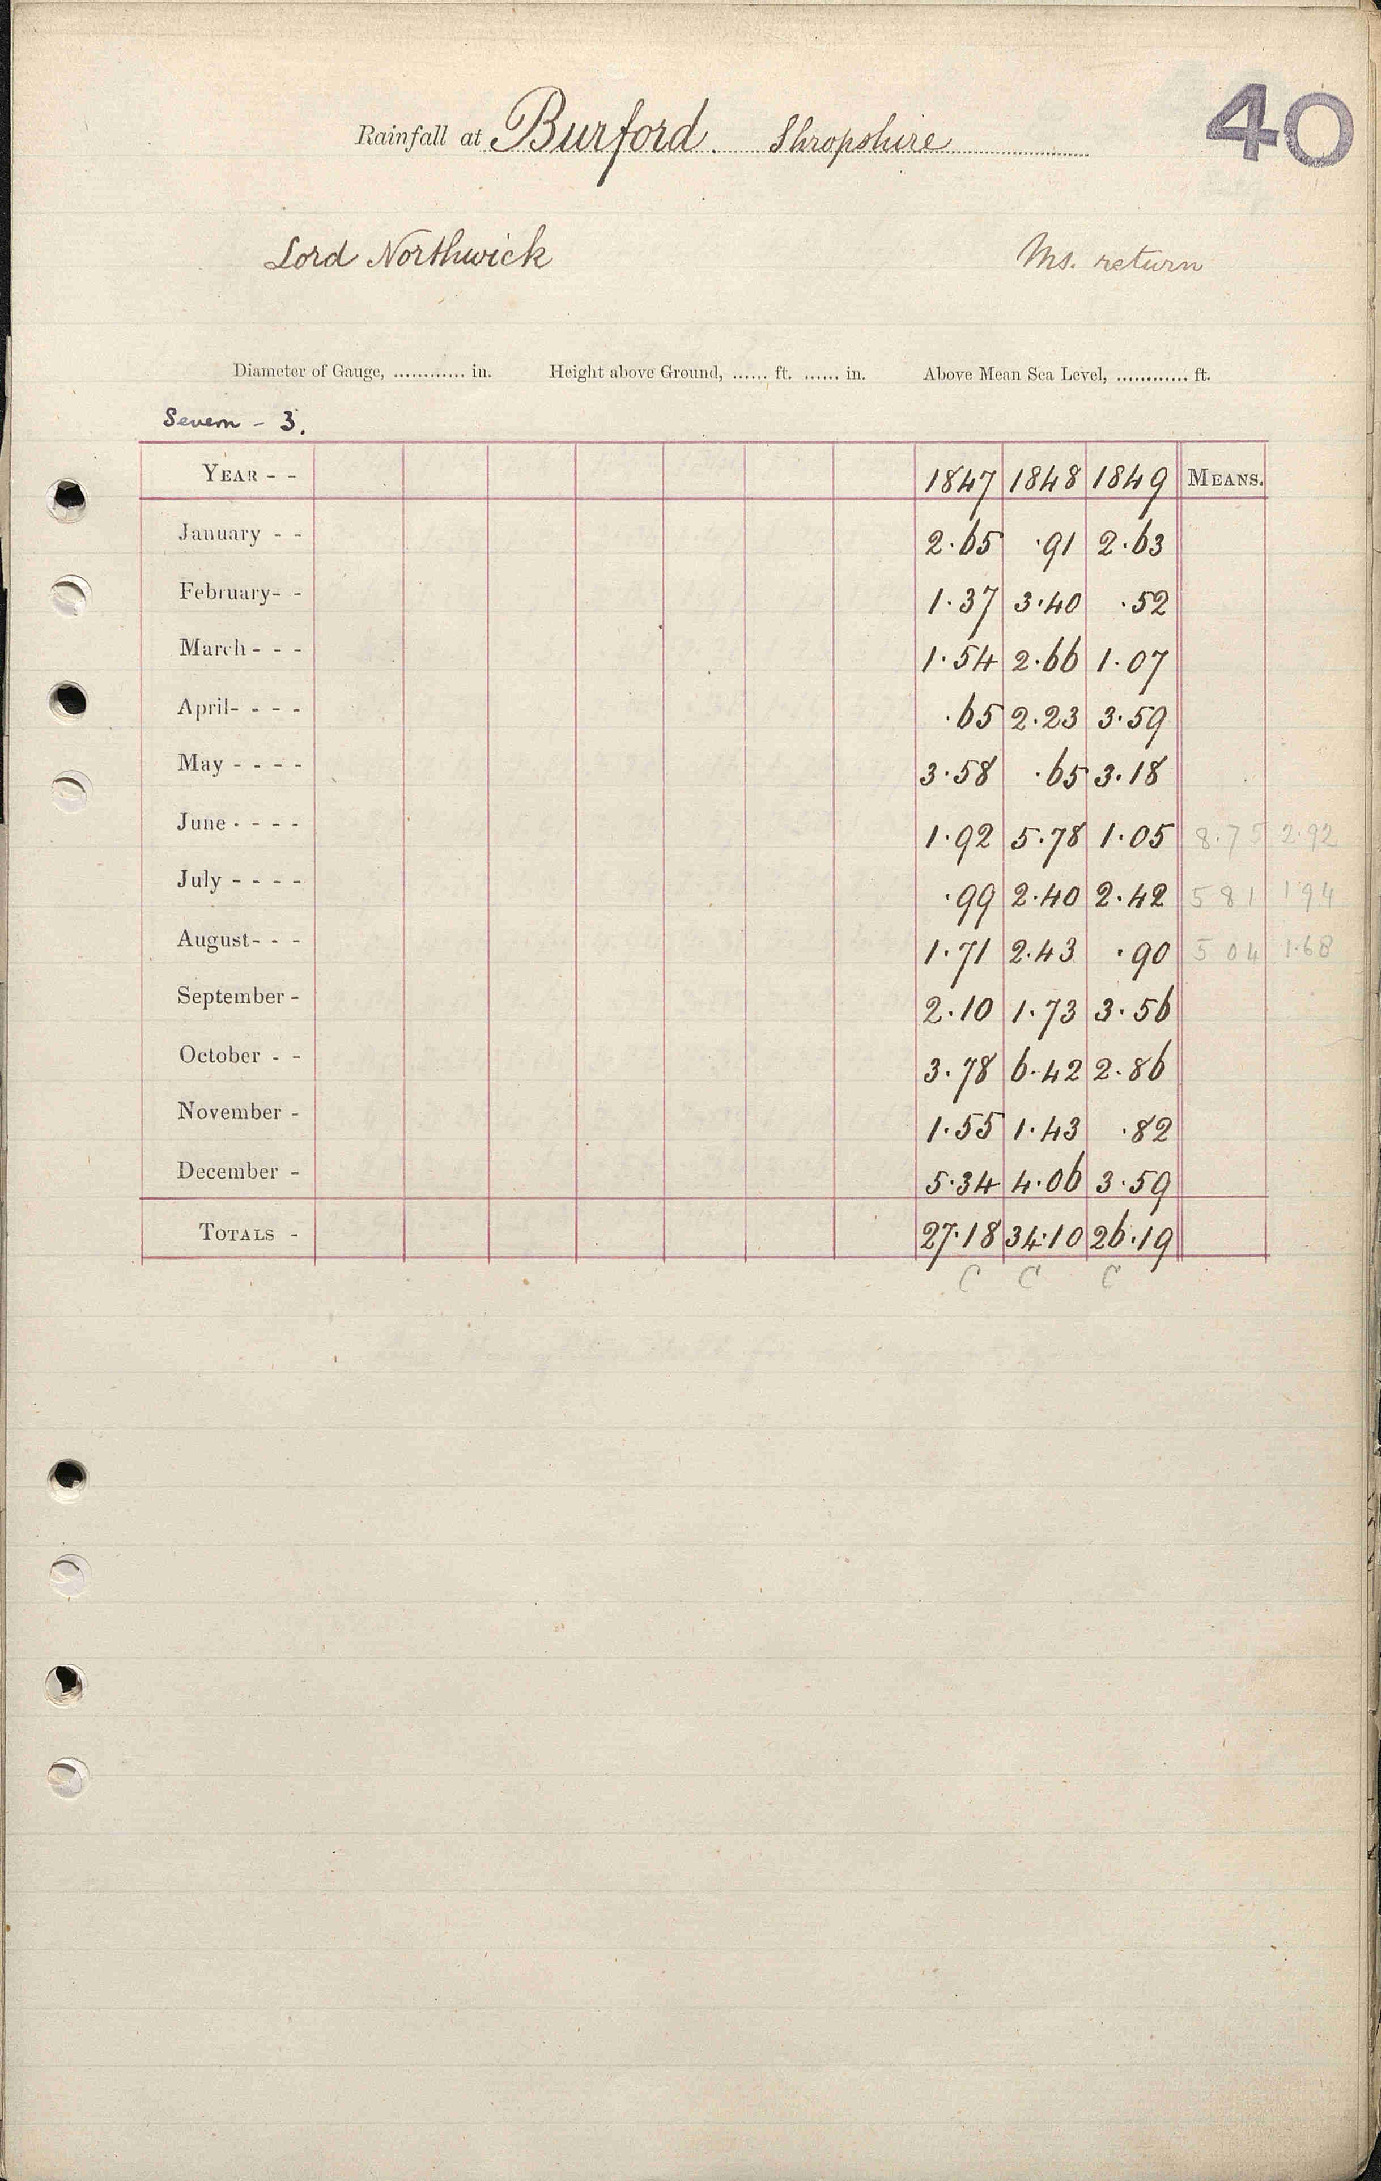 40
Rainfall at Burford. Shropshire
Lord Northwick Ms. return
Diameter of Gauge, ............ in. Height above Ground, ...... ft. ...... in. Above Mean Sea Level, ............ ft.
Severn - 3.
YEAR - - 1847 1848 1849 MEANS.
January - - 2.65 .91 2.63
February- - 1.37 3.40 .52
March - - - 1.54 2.66 1.07
April- - - - .65 2.23 3.59
May - - - - 3.58 .65 3.18
June - - - - 1.92 5.78 1.05 8.75 2.92
July - - - - .99 2.40 2.42 5 81 1 94
August- - - 1.71 2.43 .90 5 04 1.68
September - 2.10 1.73 3.56
October - - 3.78 6.42 2.86
November - 1.55 1.43 .82
December - 5.34 4.06 3.59
TOTALS - 27.18 34.10 26.19
C C C